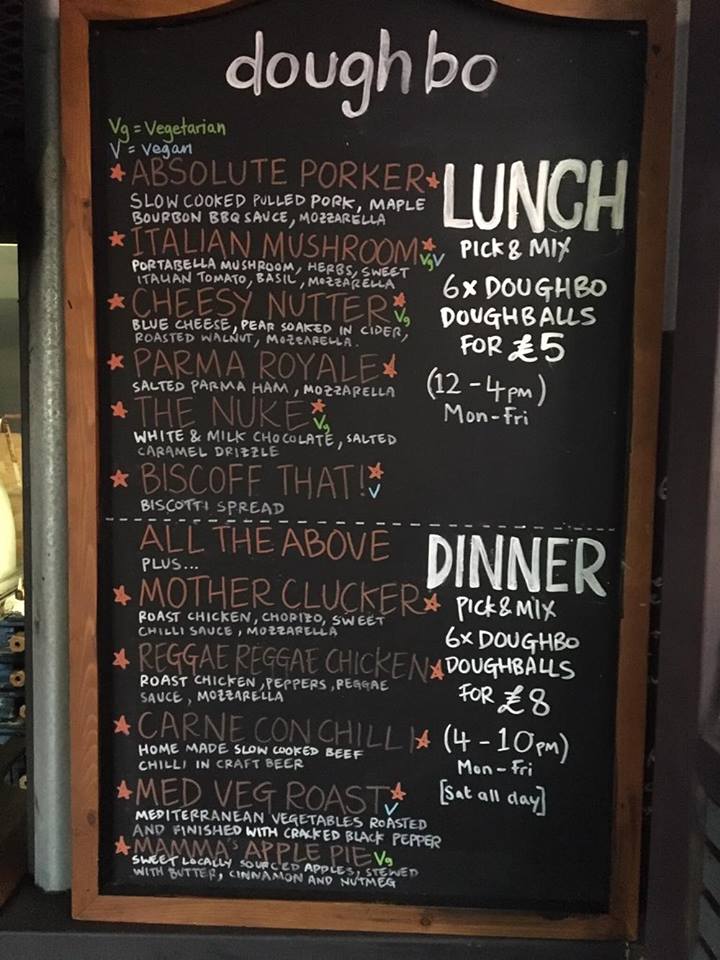 doughbo
Vg = Vegetarian
V = Vegan
ABSOLUTE PORKER
SLOW COOKED PULLED PORK, MAPLE
BOURBON BBQ SAUCE, MOZZARELLA
ITALIAN MUSHROOM Vg V
PORTABELLA MUSHROOM, HERBS, SWEET
ITALIAN TOMATO, BASIL, MOZZARELLA
CHEESY NUTTER Vg
BLUE CHEESE, PEAR SOAKED IN CIDER,
ROASTED WALNUT, MOZZARELLA.
PARMA ROYALE
SALTED PARMA HAM, MOZZARELLA
THE NUKE Vg
WHITE & MILK CHOCOLATE, SALTED
CARAMEL DRIZZLE
BISCOFF THAT! V
BISCOTTI SPREAD
LUNCH
PICK & MIX
6X DOUGHBO
DOUGHBALLS
FOR £5
(12 - 4pm)
Mon - Fri
ALL THE ABOVE
PLUS...
MOTHER CLUCKER
ROAST CHICKEN, CHORIZO, SWEET
CHILLI SAUCE, MOZZARELLA
REGGAE REGGAE CHICKEN
ROAST CHICKEN, PEPPERS, REGGAE
SAUCE, MOZZARELLA
CARNE CON CHILLI
HOME MADE SLOW COOKED BEEF
CHILLI IN CRAFT BEER
MED VEG ROAST V
MEDITERRANEAN VEGETABLES ROASTED
AND FINISHED WITH CRACKED BLACK PEPPER
MAMMA'S APPLE PIE Vg
SWEET LOCALLY SOURCED APPLES, STEWED
WITH BUTTER, CINNAMON AND NUTMEG
DINNER
PICK & MIX
6X DOUGHBO
DOUGHBALLS
FOR £8
(4 - 10pm)
Mon - Fri
[Sat all day]